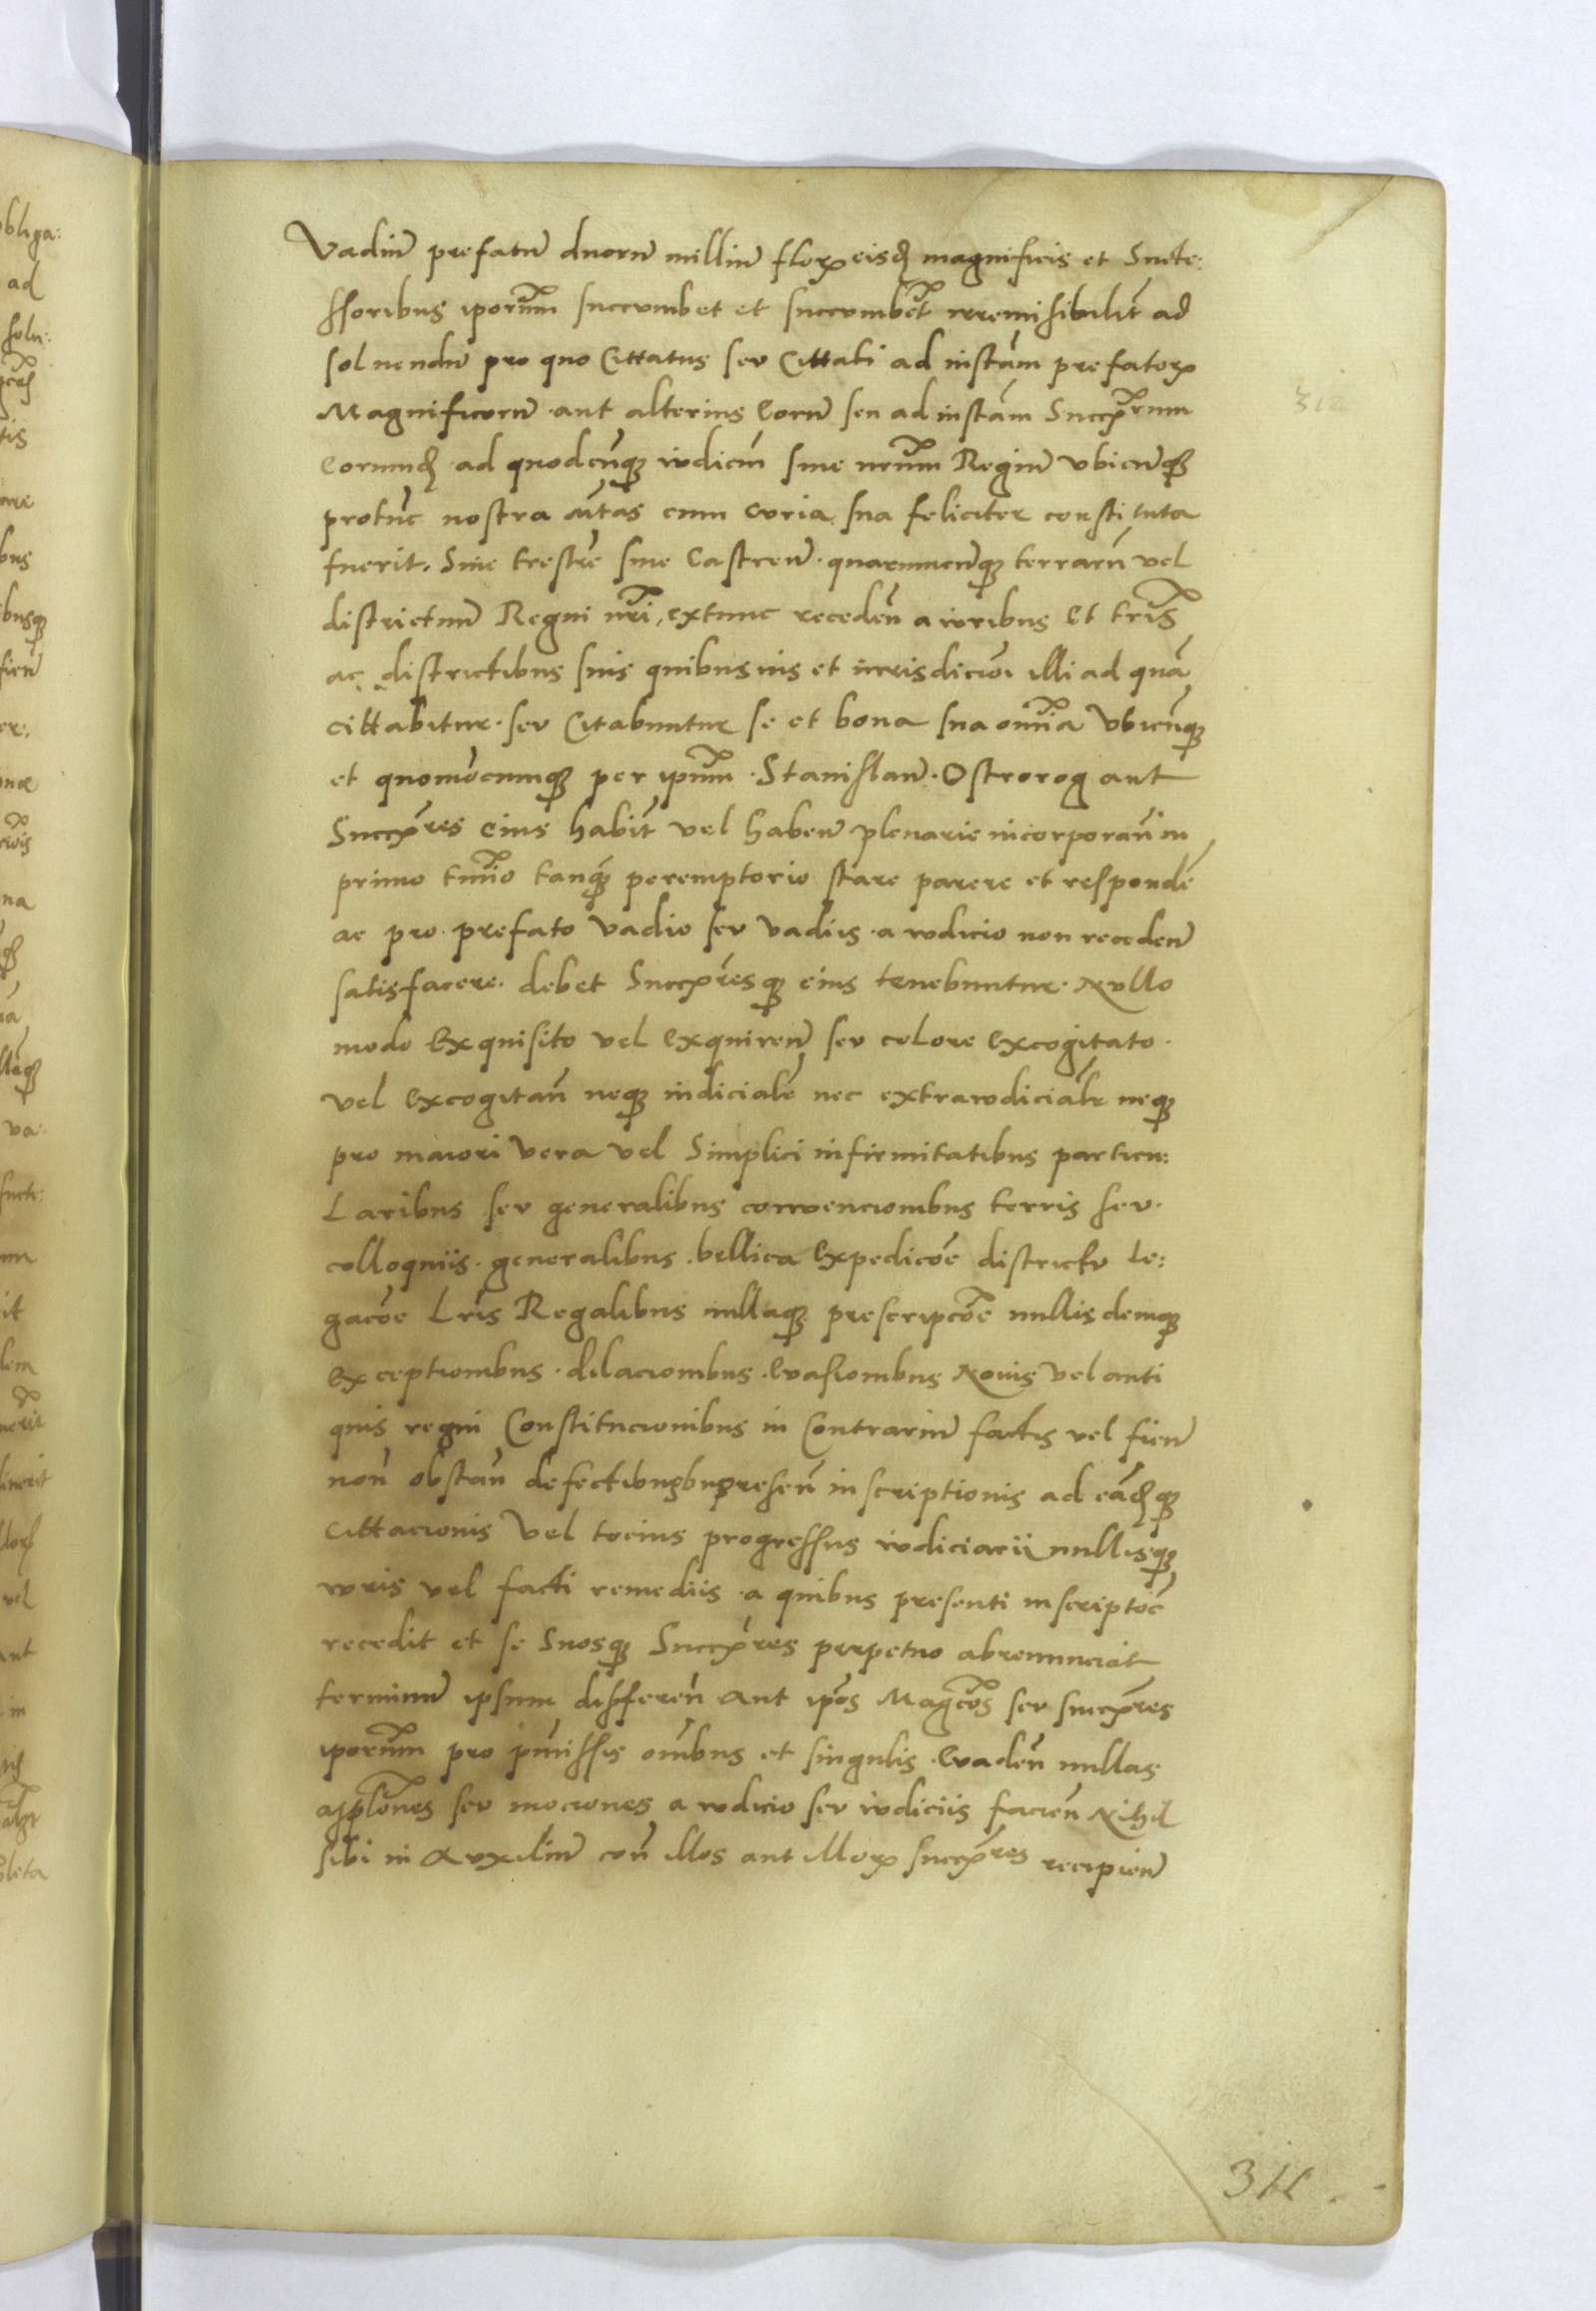 Vadiu͂ prefatu͂ duoru͂ milliu͂ floꝝ eisdꝫ magnificis et Succe:
ssoribus ipor͂um succumbet et succumbe͂t irremisibilit͂ ad
soluendu͂ pro quo Cittatus seu Cittati ad insta͂m prefatoꝝ
Magnificoru͂ aut alterius Eoru͂ seu ad insta͂m Succ͂rum
Eorumdꝫ ad quodcu͂qꝫ iudiciu͂ siue nr͂um Regiu͂ vbicu͂qꝫ
protu͂c nostra M͂tas cum curia sua feliciter constituta
fuerit. Siue tr͂estre siue Castren͂ quarumcu͂qꝫ terraru͂ vel
districtuu͂ Regni nr͂i, extunc receden͂ a iuribus Et tr͂is
ac districtibus suis quibusuis et iurisdicio͂i illi ad qua͂
cittabitur seu Citabuntur se et bona sua om͂ia Vbicu͂qꝫ
et quomo͂cumqꝫ per ip͂um Stanislau͂ Ostrorog aut
Succ͂res eius habit͂ vel haben͂ plenarie incorporan͂ in
primo tmi͂o tanqꝫ peremptorio stare parere et responde͂
ac pro prefato Vadio seu vadiis a iudicio non receden͂
satisfacere debet Succ͂resqꝫ eius tenebuntur Nullo
modo Exquisito vel Exquiren͂ seu colore Excogitato
vel Excogitan͂ neqꝫ iudicialit͂ nec extraiudicialit͂ neqꝫ
pro maiori vera vel Simplici infirmitatibus particu:
Laribus seu generalibus conuencionibus terris seu
colloquiis generalibus bellica Expedicio͂e districtu le:
gacio͂e Lr͂is Regalibus nullaqꝫ prescripcio͂e nullis demqꝫ
Exceptionibus dilacionibus Euasionibus Nouis vel anti
quis regni Constitucionibus in Contrariu͂ factis vel fien͂
non͂ obstan͂ defectibusqꝫ presen͂ inscriptionis ad ea͂dꝫqꝫ
Cittacionis Vel tocius progressus iudiciarii nullisqꝫ
iuris vel facti remediis a quibus presenti inscriptio͂e
recedit et se Suosqꝫ Succ͂res perpetuo abrenunciat
terminu͂ ipsum differen͂ Aut ip͂os Mag͂cos seu succ͂res
ipor͂um pro p͂missis om͂ibus et singulis Euaden͂ nullas
app͂lones seu mociones a iudicio seu iudiciis facien͂ Nihil
sibi in Auxiliu͂ con͂ illos aut illoꝝ succ͂res recipien͂
312
311